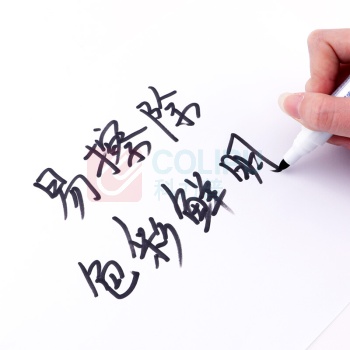 易擦除
色彩鲜明
COLI
科